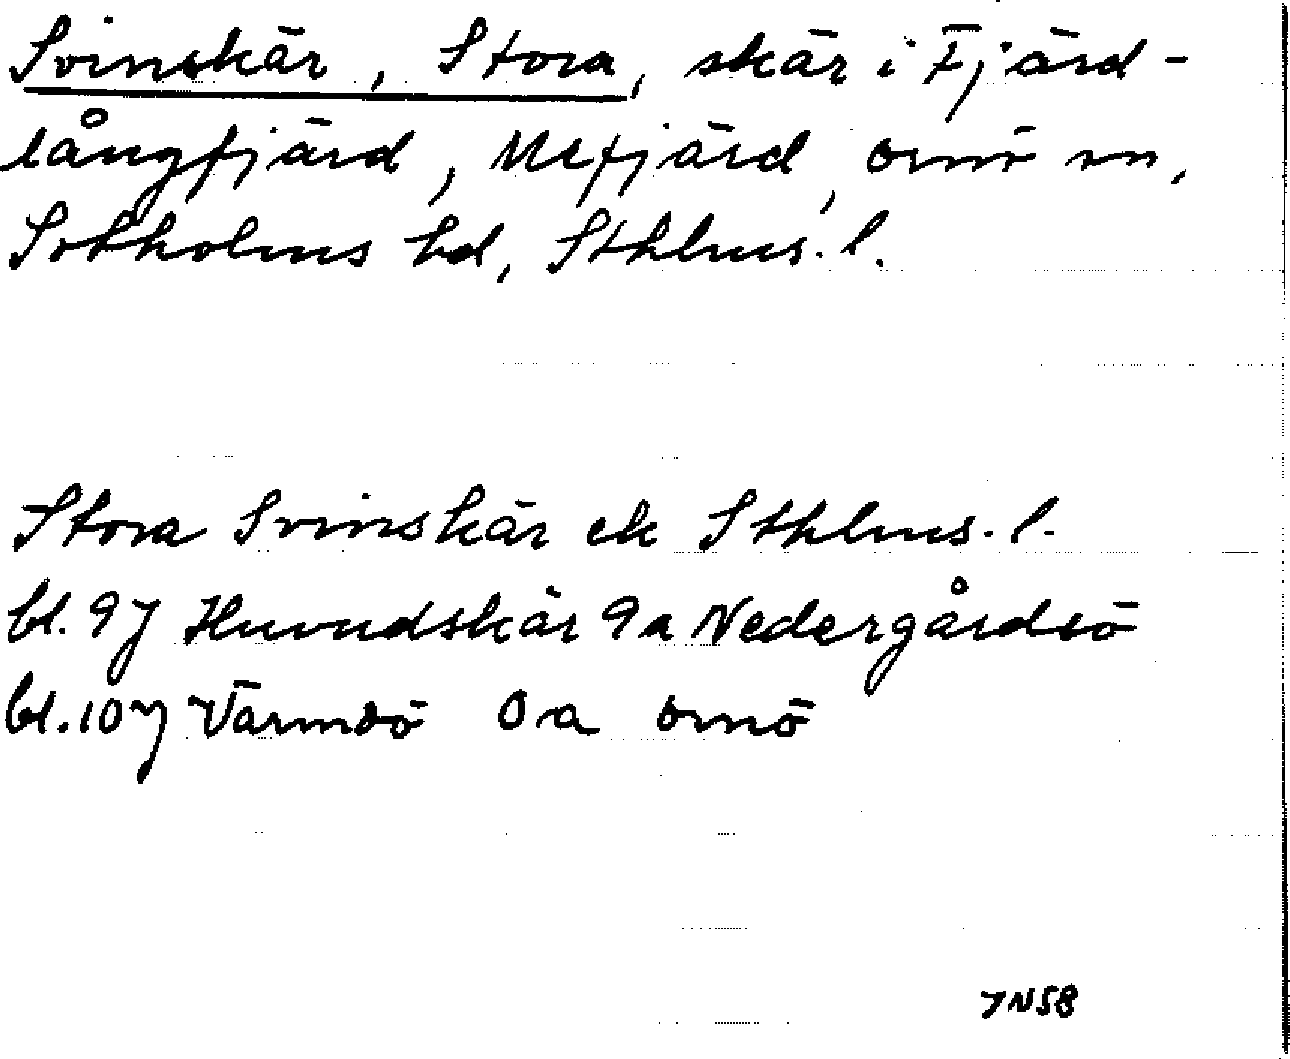 Svinskär, Stora, skär i Fjärd-
långfjärd, Mefjärd, Ornö sn,
Sotholms hd, Sthlms. l.
Stora Svinskär ek Sthlms. l.
bl. 9J Huvudskär 9a Nedergårdsö
bl. 10J Värmdö 0a Ornö